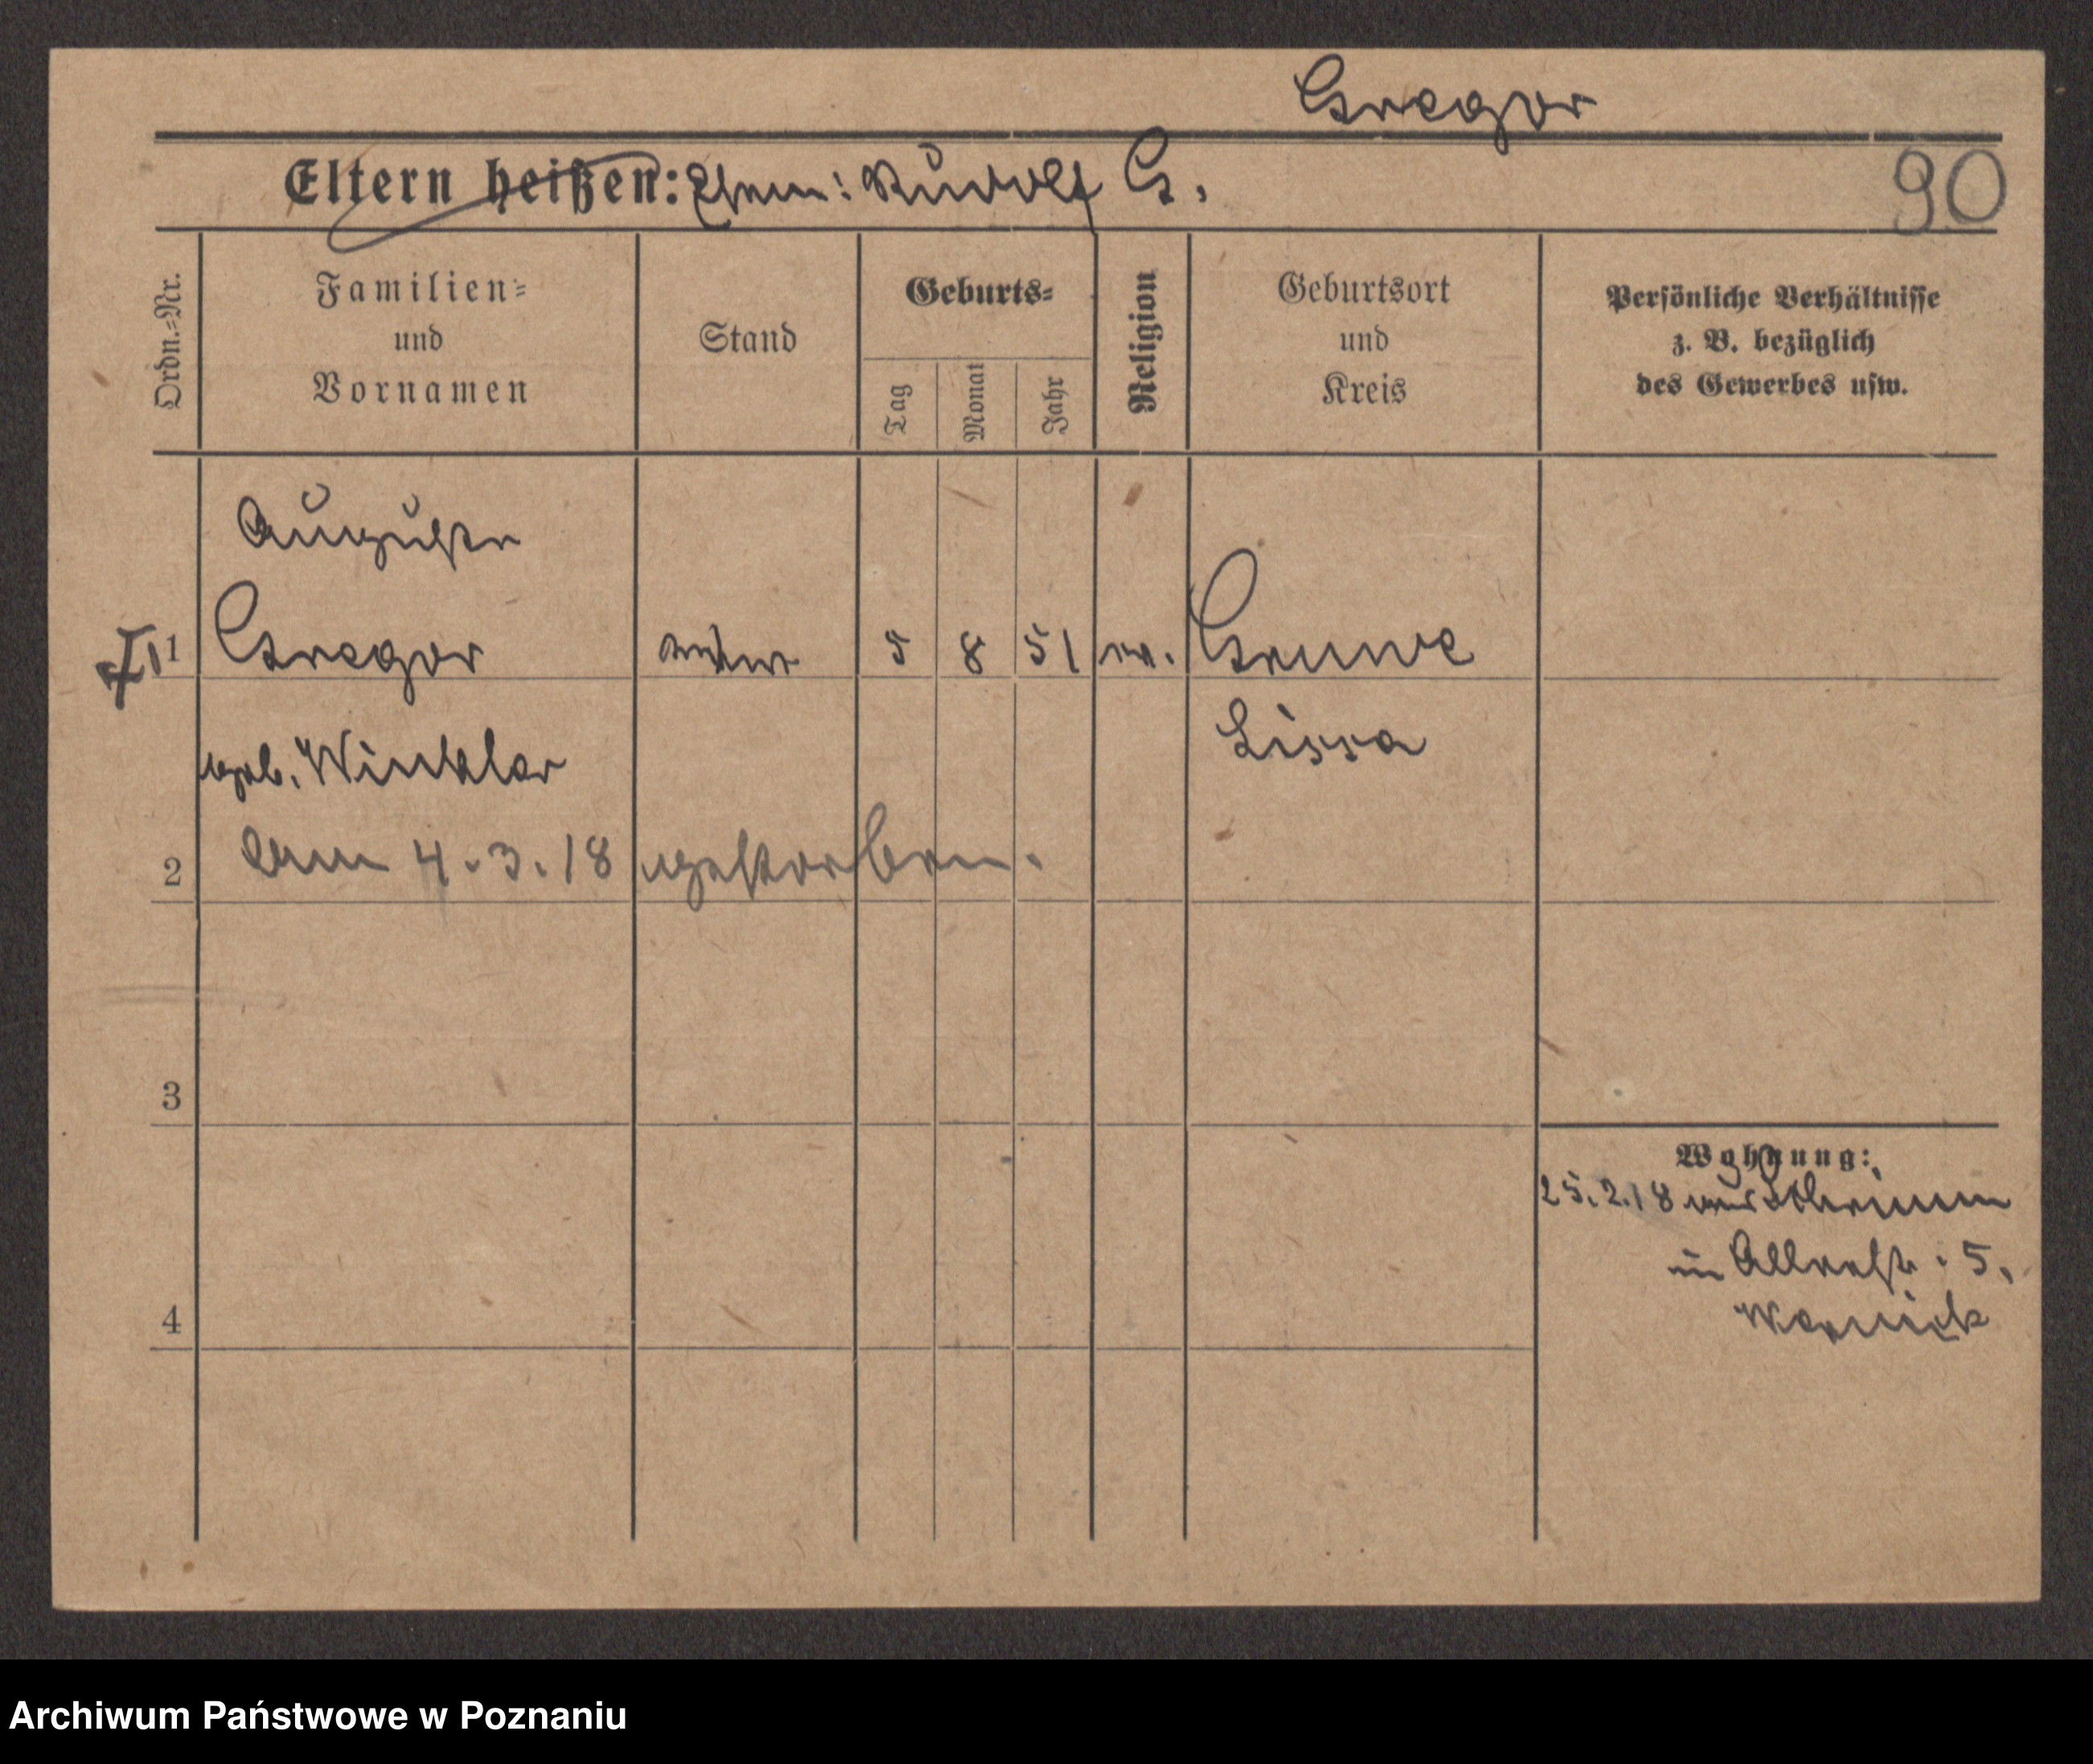 Gregor
Eltern heißen: Ehem: Rudolf G.
90
Ordn.-Nr.
Familien-
und
Vornamen
Stand
Geburts-
Tag
Monat
Jahr
Religion
Geburtsort
und
Kreis
Persönliche Verhältnisse
z. B. bezüglich
des Gewerbes usw.
Auguste
1 Gregor Witwe 5 8 51 ev. Grune
geb. Winkler Lissa
2 am 4.3.18 gestorben.
3
Wohnung:
25.2.18 aus Schrimm
in 5.
4
Archiwum Państwowe w Poznaniu